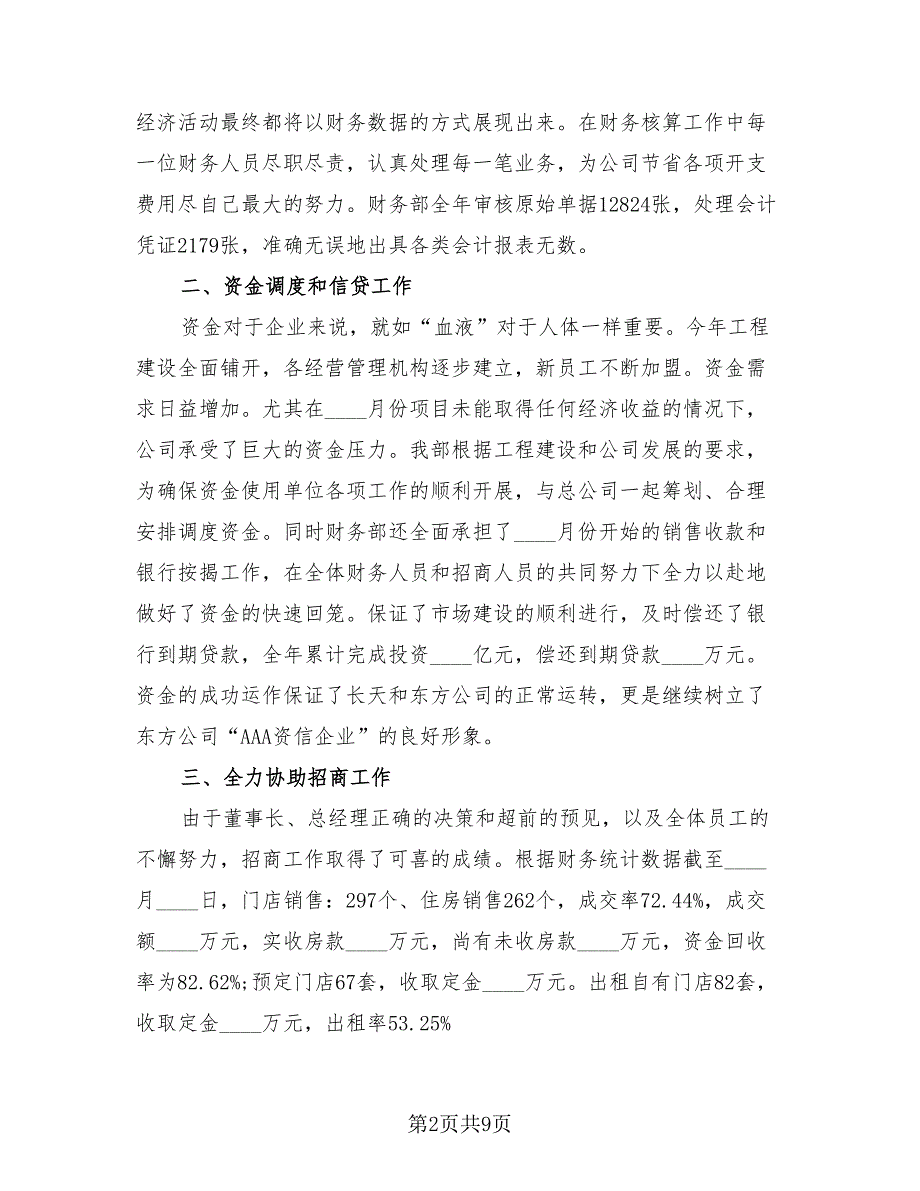 经济活动最终都将以财务数据的方式展现出来。在财务核算工作中每
一位财务人员尽职尽责，认真处理每一笔业务，为公司节省各项开支
费用尽自己最大的努力。财务部全年审核原始单据12824张，处理会计
凭证2179张，准确无误地出具各类会计报表无数。
二、资金调度和信贷工作
资金对于企业来说，就如“血液”对于人体一样重要。今年工程
建设全面铺开，各经营管理机构逐步建立，新员工不断加盟。资金需
求日益增加。尤其在____月份项目未能取得任何经济收益的情况下，
公司承受了巨大的资金压力。我部根据工程建设和公司发展的要求，
为确保资金使用单位各项工作的顺利开展，与总公司一起筹划、合理
安排调度资金。同时财务部还全面承担了____月份开始的销售收款和
银行按揭工作，在全体财务人员和招商人员的共同努力下全力以赴地
做好了资金的快速回笼。保证了市场建设的顺利进行，及时偿还了银
行到期贷款，全年累计完成投资____亿元，偿还到期贷款____万元。
资金的成功运作保证了长天和东方公司的正常运转，更是继续树立了
东方公司“AAA资信企业”的良好形象。
三、全力协助招商工作
由于董事长、总经理正确的决策和超前的预见，以及全体员工的
不懈努力，招商工作取得了可喜的成绩。根据财务统计数据截至____
月____日，门店销售：297个、住房销售262个，成交率72.44%，成交
额____万元，实收房款____万元，尚有未收房款____万元，资金回收
率为82.62%;预定门店67套，收取定金____万元。出租自有门店82套，
收取定金____万元，出租率53.25%
第2页共9页